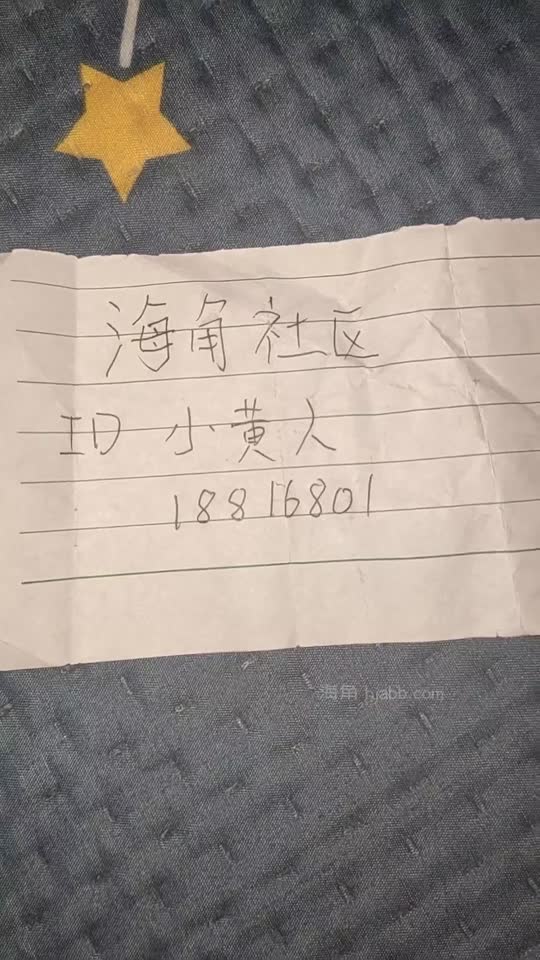 海角社区
ID 小黄人
18816801
海角 hjabb.com